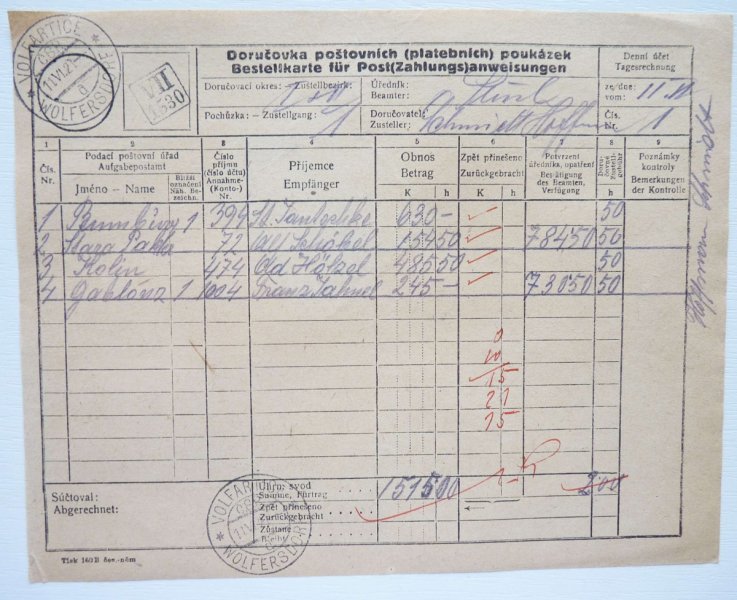 VOLFARTICE
WOLFERSDORF
VII
1330
Doručovka poštovních (platebních) poukázek
Bestellkarte für Post(Zahlungs)anweisungen
Denní účet
Tagesrechnung
Doručovací okres: – Zustellbezirk:
Úředník:
Beamter:
ze/dne:
vom: 11.VI
Pochůzka: – Zustellgang: 1
Doručovatel:
Zusteller: Schmidt Hoffmann
Čís.
Nr. 1
1 2 3 4 5 6 7 8 9
Čís.
Nr.
Podací poštovní úřad
Aufgabepostamt
Jméno – Name
Bližší
označení
Näh. Be-
zeichn.
Číslo
příjmu
(číslo účtu)
Annahme-
(Konto-)
Nr.
Příjemce
Empfänger
Obnos
Betrag
K h
Zpět přineseno
Zurückgebracht
K h
Potvrzení
úředníka, opatření
Bestätigung
des Beamten,
Verfügung
Doru-
čovné
Zustell-
gebühr
h
Poznámky
kontroly
Bemerkungen
der Kontrolle
1 1 399 630 – 50
2 Stara Paka 72 154 50 784 50 50
3 Kolin 474 Ad Hölzel 485 50 50
4 Gablonz 1 1004 Franz 245 – 730 50 50
0
10
15
21
15
Súčtoval:
Abgerechnet:
Úhrn: svod
Summe, Fürtrag 1515 00 2.00
Zpět přineseno
Zurückgebracht
Zůstane
Bleibt
VOLFARTICE
WOLFERSDORF
Tisk 160 B čes.-něm